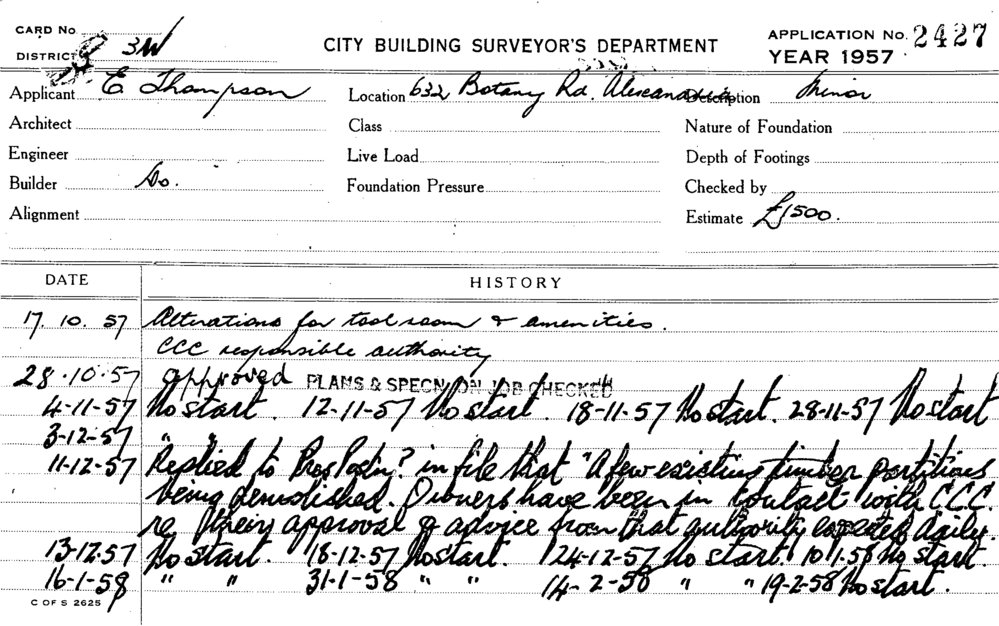 CARD No.
DISTRICT 3W
CITY BUILDING SURVEYOR'S DEPARTMENT
APPLICATION No. 2427
YEAR 1957
Applicant E. Thompson Location 632 Botany Rd. Alexandria Description Minor
Architect Class Nature of Foundation
Engineer Live Load Depth of Footings
Builder Do. Foundation Pressure Checked by
Alignment Estimate £1500.
DATE HISTORY
17. 10. 57 Alterations for tool room & amenities.
CCC responsible authority
28-10-57 approved PLANS & SPECN ON JOB CHECKED
4-11-57 No start. 12-11-57 No start. 18-11-57 No start. 28-11-57 No start
3-12-57 " "
11-12-57 Replied to ? in file that "A few existing timber partitions
being demolished. Owners have been in contact with C.C.C.
re their approval & advice from that authority expected daily.
13-12-57 No start. 18-12-57 No start. 24-12-57 No start. 10-1-58 No start.
16-1-58 " " 31-1-58 " " 14-2-58 " " 19-2-58 No start.
C OF S 2625